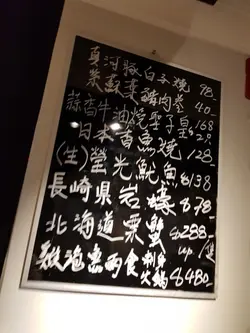 真河豚白子燒 98.-
紫蘇 肉卷 40.-
蒜香牛油燒聖子皇 $168
日本香魚燒 128.-
(生)螢光魷魚 $138
長崎県岩蠔 $78.-
北海道栗蟹 $288.- up/隻
兩食 刺身 火鍋 $480.-